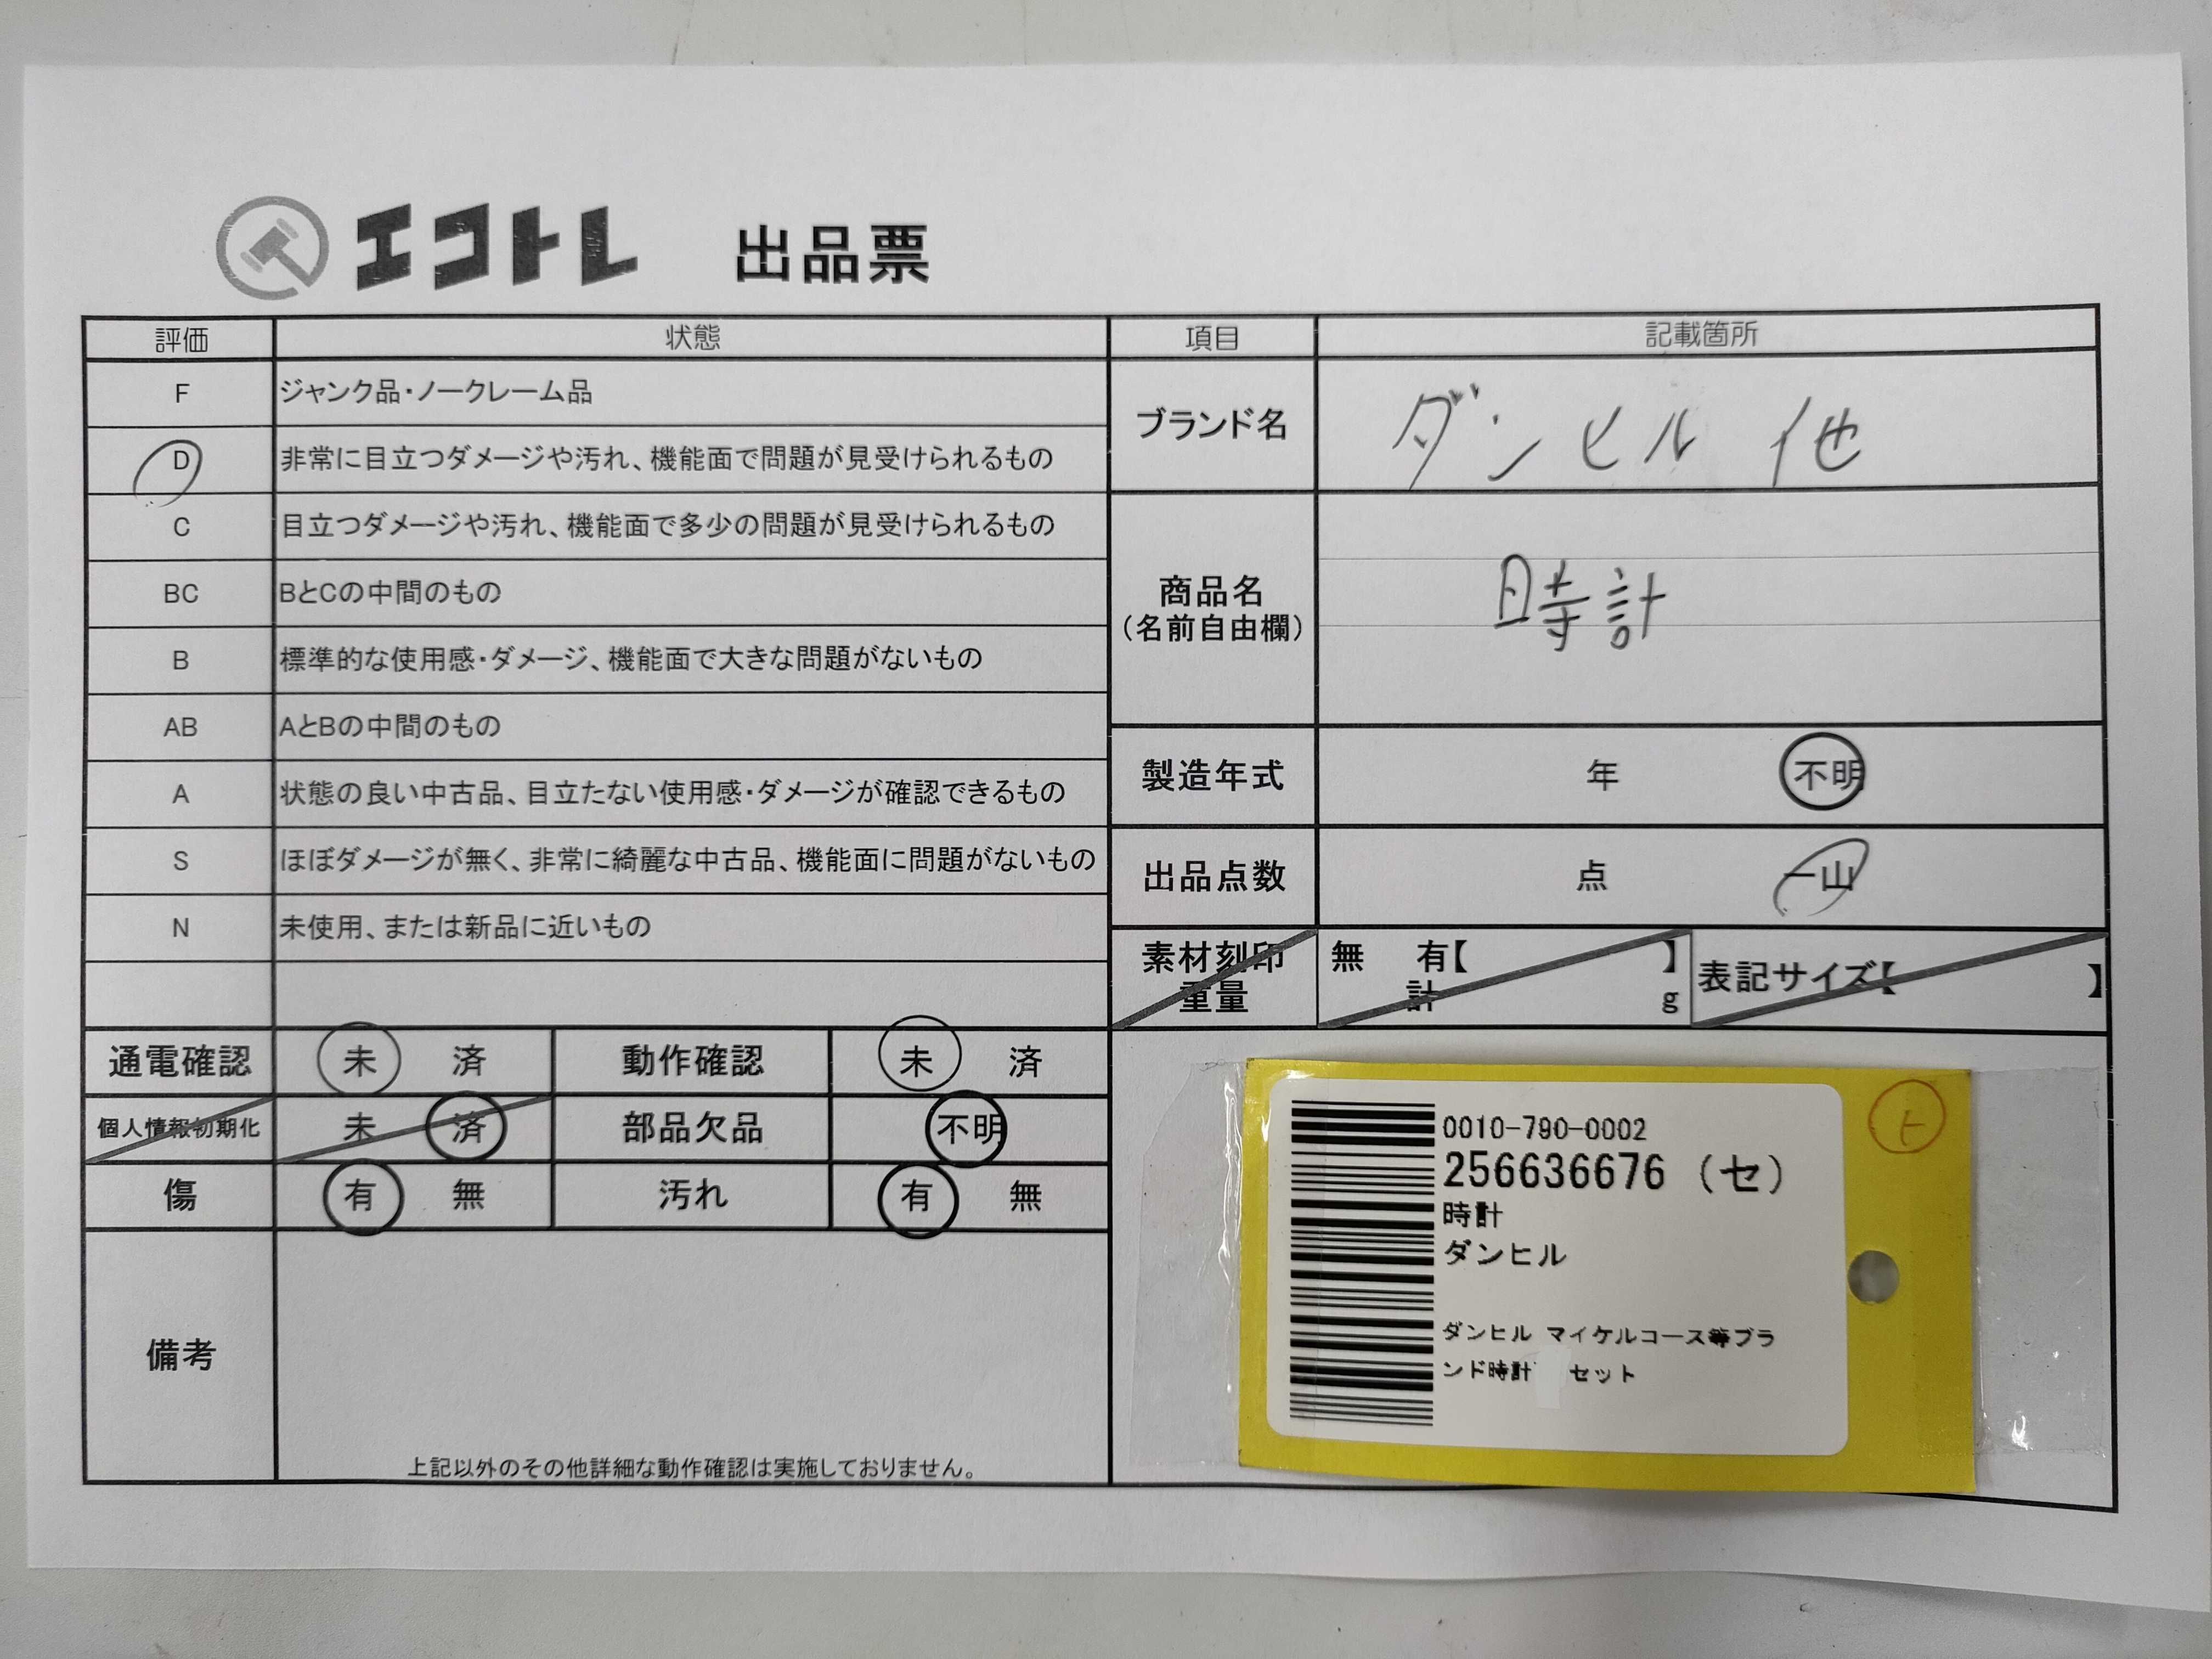 エコトレ 出品票
評価 状態 項目 記載箇所
F ジャンク品・ノークレーム品
D 非常に目立つダメージや汚れ、機能面で問題が見受けられるもの
C 目立つダメージや汚れ、機能面で多少の問題が見受けられるもの
BC BとCの中間のもの
B 標準的な使用感・ダメージ、機能面で大きな問題がないもの
AB AとBの中間のもの
A 状態の良い中古品、目立たない使用感・ダメージが確認できるもの
S ほぼダメージが無く、非常に綺麗な中古品、機能面に問題がないもの
N 未使用、または新品に近いもの
ブランド名 ダンヒル 他
商品名
(名前自由欄)
時計
製造年式 年 不明
出品点数 点 一山
素材刻印
重量
無 有【 】
計 g
表記サイズ【 】
通電確認 未 済 動作確認 未 済
個人情報初期化 未 済 部品欠品 不明
傷 有 無 汚れ 有 無
備考
上記以外のその他詳細な動作確認は実施しておりません。
0010-790-0002
256636676 (セ)
時計
ダンヒル
ダンヒル マイケルコース等ブラ
ンド時計 セット
ト